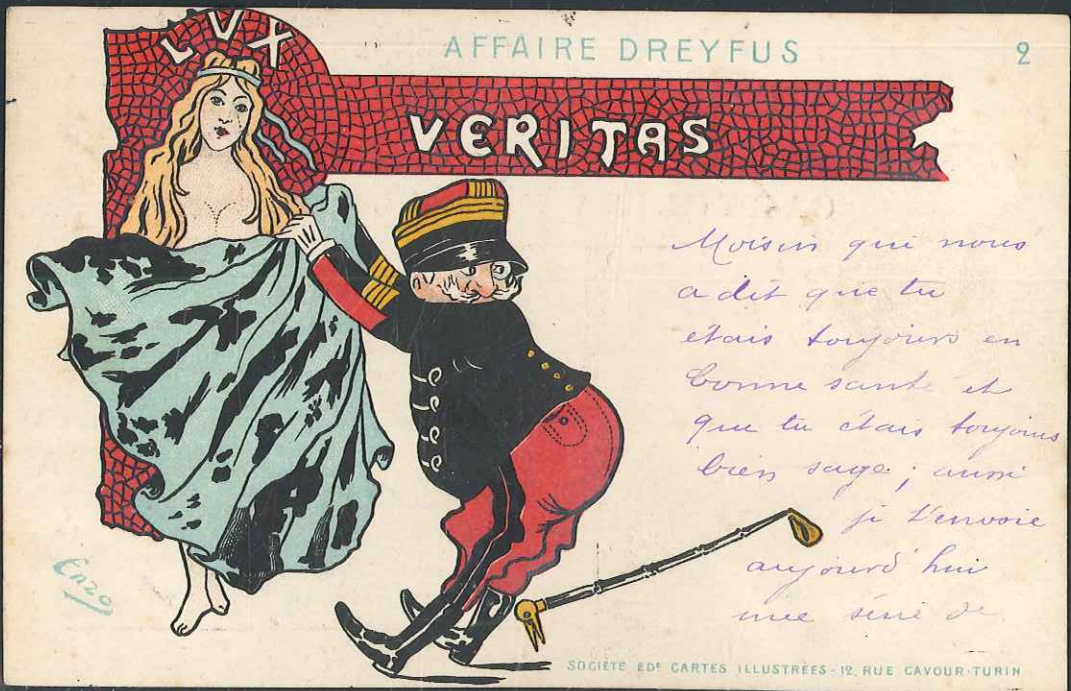 LUX
AFFAIRE DREYFUS
2
VERITAS
qui nous
a dit que tu
étais toujours en
bonne santé et
que tu étais toujours
bien sage; aussi
je t'envoie
aujourd'hui
une série de
Enzo
SOCIÉTÉ EDᵉ CARTES ILLUSTRÉES - 12, RUE CAVOUR - TURIN